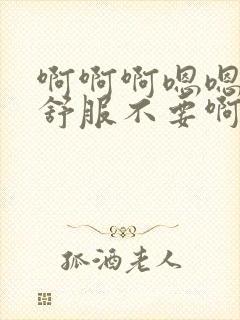 啊啊啊嗯嗯
舒服不要啊
孤酒老人